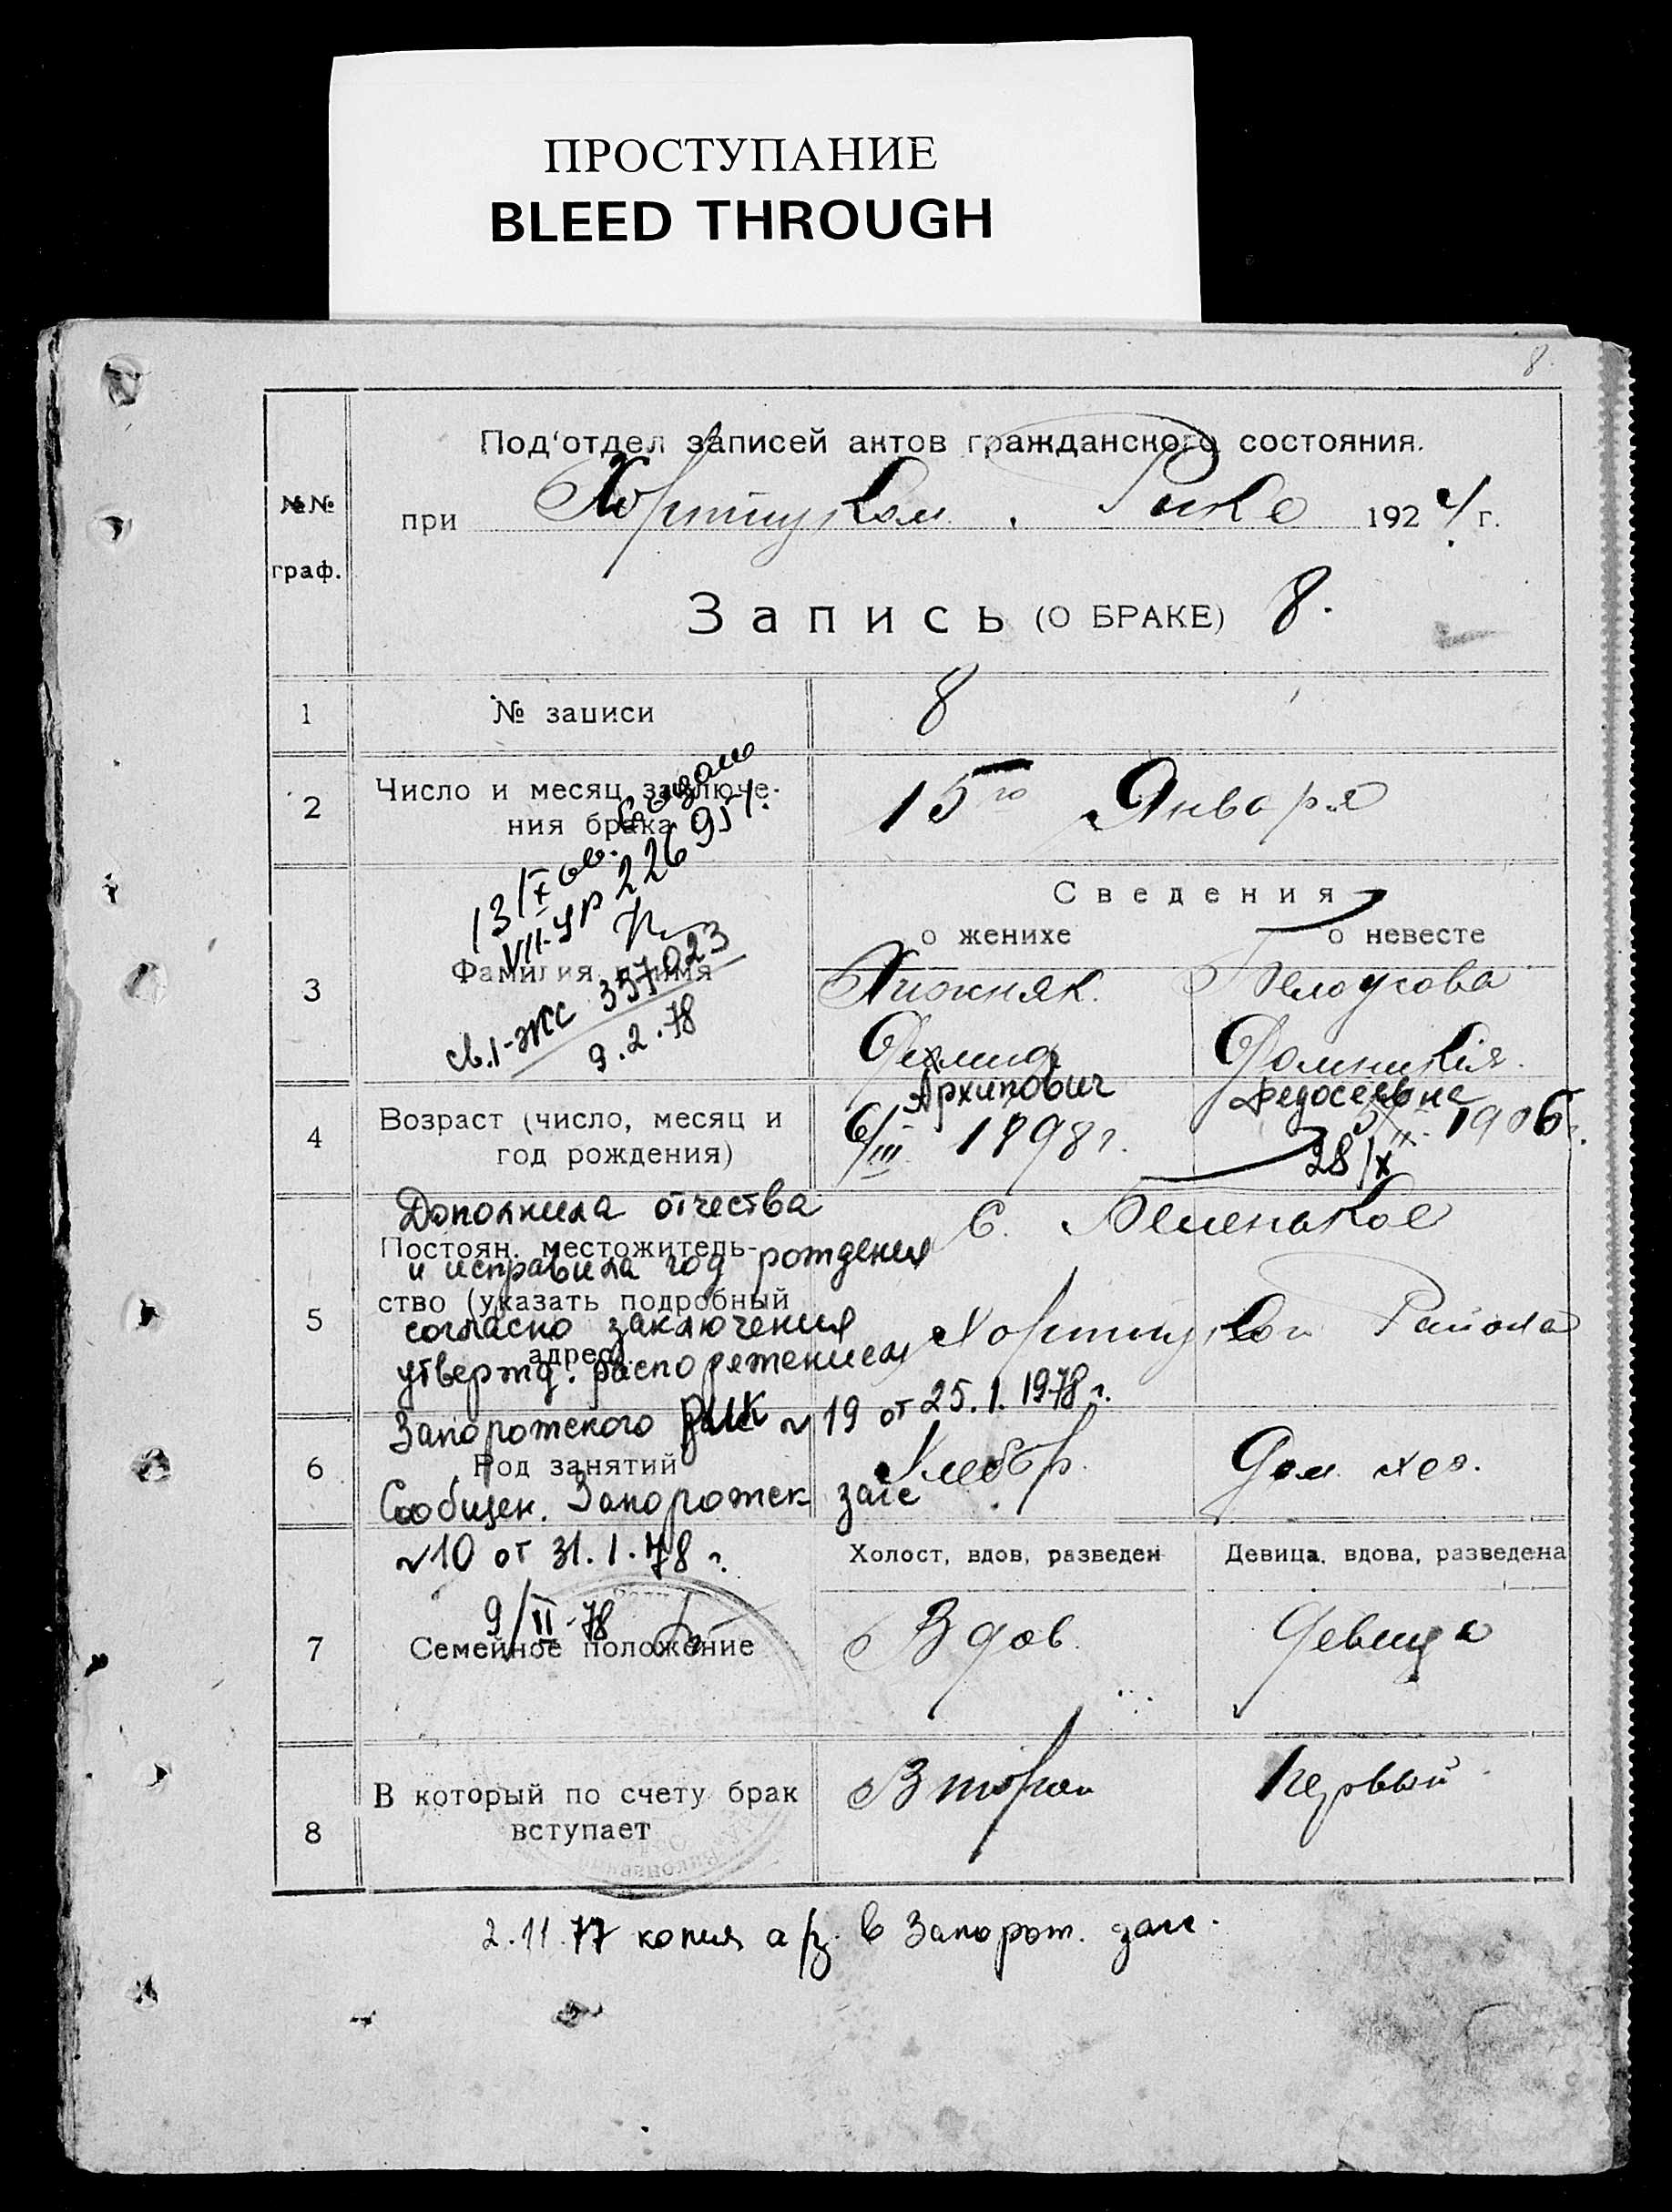 ПРОСТУПАНИЕ
BLEED THROUGH
8.
Под'отдел записей актов гражданского состояния.
№№
граф.
при Хортицком Рике 1924 г.
Запись (О БРАКЕ) 8.
1 № записи 8
2 Число и месяц заключе-
ния брака 15го Января
13/X 66. Создано
VII-УР 226951.
св. I-ЖС 357023
9.2.78
Сведения
о женихе о невесте
3 Фамилия имя Хижняк. Белоусова
Фомникия.
Архипович Федосеевна
4 Возраст (число, месяц и
год рождения) 6/III 1898 г. 1906 г.
28/X
Дополнила отчества
5 Постоян. местожитель- с. Беленькое
и исправила год рождения
ство (указать подробный
согласно заключения Хортицкого Района
адрес).
утвержд. распоряжением
Запорожского РИК N 19 от 25.1.1978 г.
6 Род занятий Хлебор. Дом. хоз.
Сообщен. Запорожск загс
N10 от 31.1.78 г.
Холост, вдов, разведен Девица, вдова, разведена
9/II-78
7 Семейное положение Вдов. Девица
8 В который по счету брак
вступает Второй Первый
2.11.77 копия а/з. в Запорож. загс.